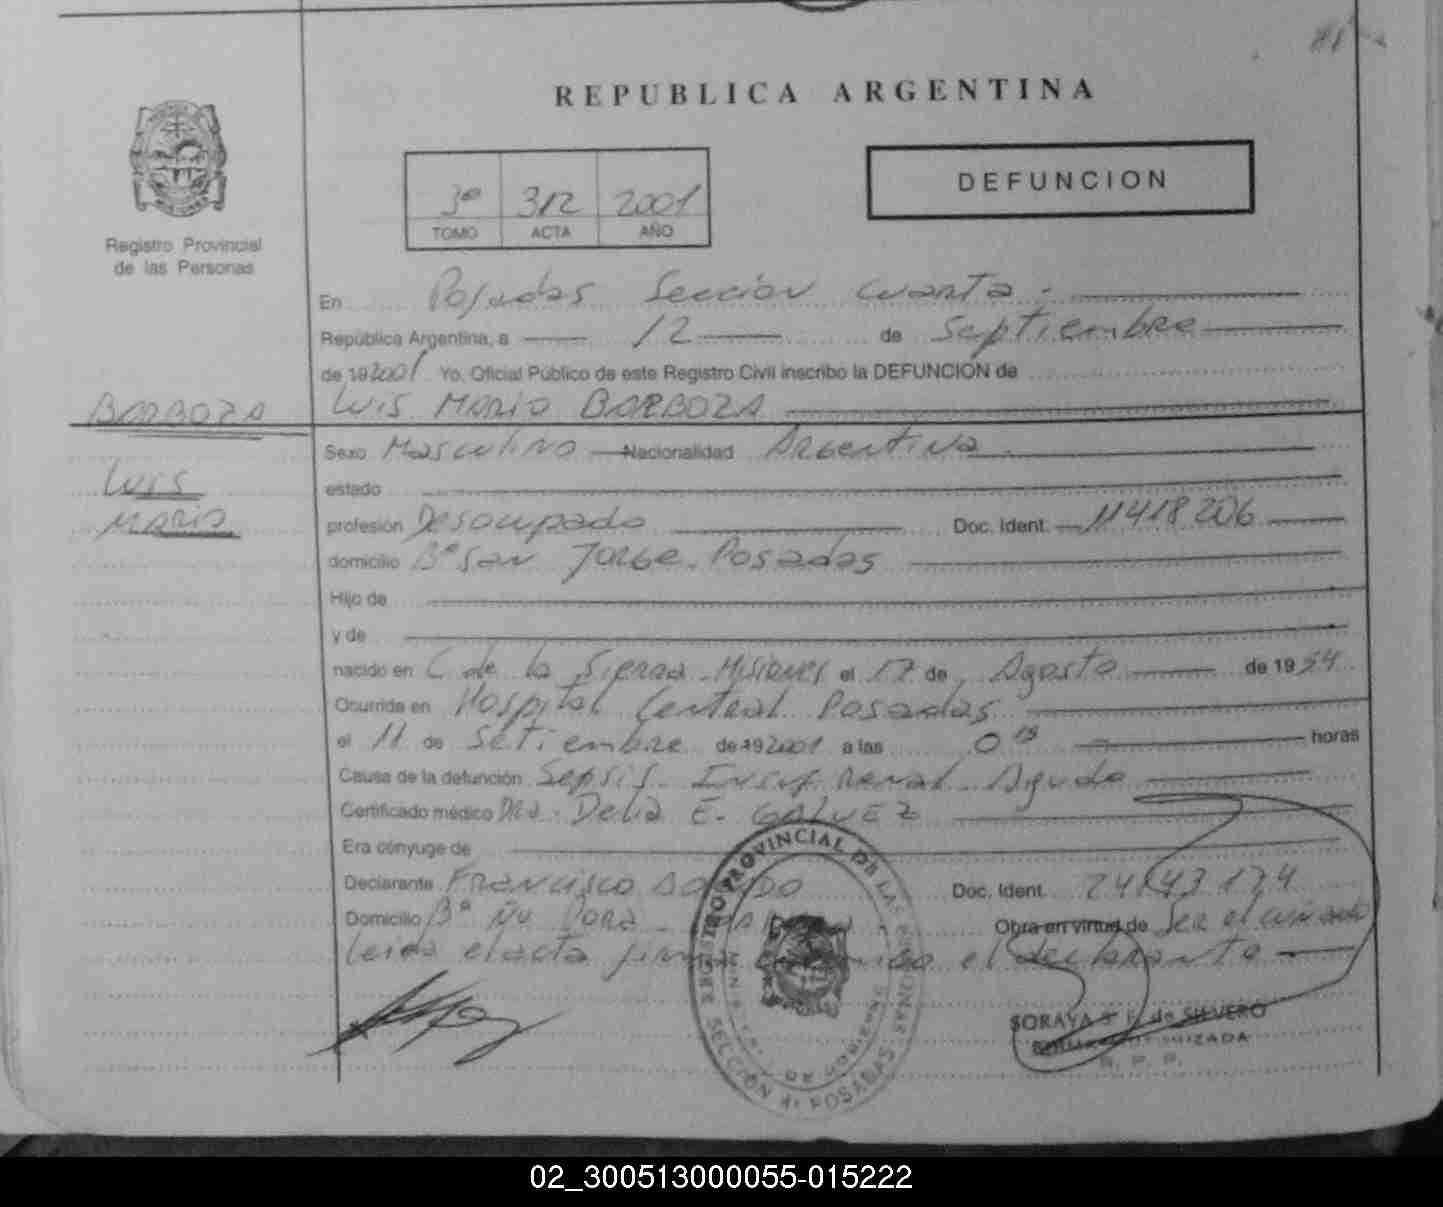 REPUBLICA ARGENTINA
3º 312 2001
TOMO ACTA AÑO
DEFUNCION
Registro Provincial
de las Personas
En Posadas Sección Cuarta.
República Argentina, a 12 de Septiembre
de 192001 Yo, Oficial Público de este Registro Civil inscribo la DEFUNCION de
BARBOZA
LUIS MARIO BARBOZA
Sexo Masculino Nacionalidad Argentina
LUIS
estado
MARIO
profesión Desocupado Doc. Ident. 11418206
domicilio Bº San Jorge. Posadas
Hijo de
y de
nacido en C de la Sierra - Misiones el 17 de Agosto de 1954
Ocurrida en Hospital Central Posadas
el 11 de Setiembre de 192001 a las 0 15 horas
Causa de la defunción Sepsis. Insuf. Renal Aguda
Certificado médico Dra. Delia E. GALVEZ
Era cónyuge de
Declarante Francisco Doc. Ident.
Domicilio Bº Ñu Pora Obra en virtud de Ser el cuñado
Leida el acta firma el declarante
REGISTRO PROVINCIAL DE LAS PERSONAS
MINISTERIO DE GOBIERNO
SECCIÓN 4ª POSADAS
SORAYA de SILVERO
R. P. P.
02_300513000055-015222